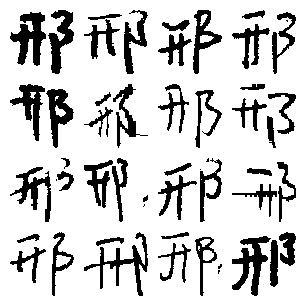 邢邢邢邢
邢邢邢邢
邢邢邢邢
邢邢邢邢